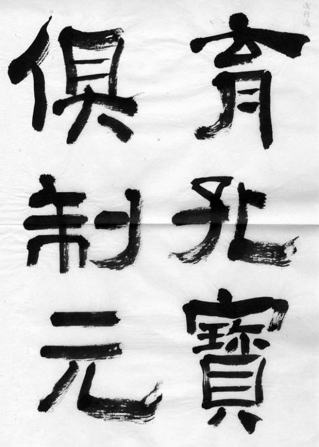 育孔寶
俱制元